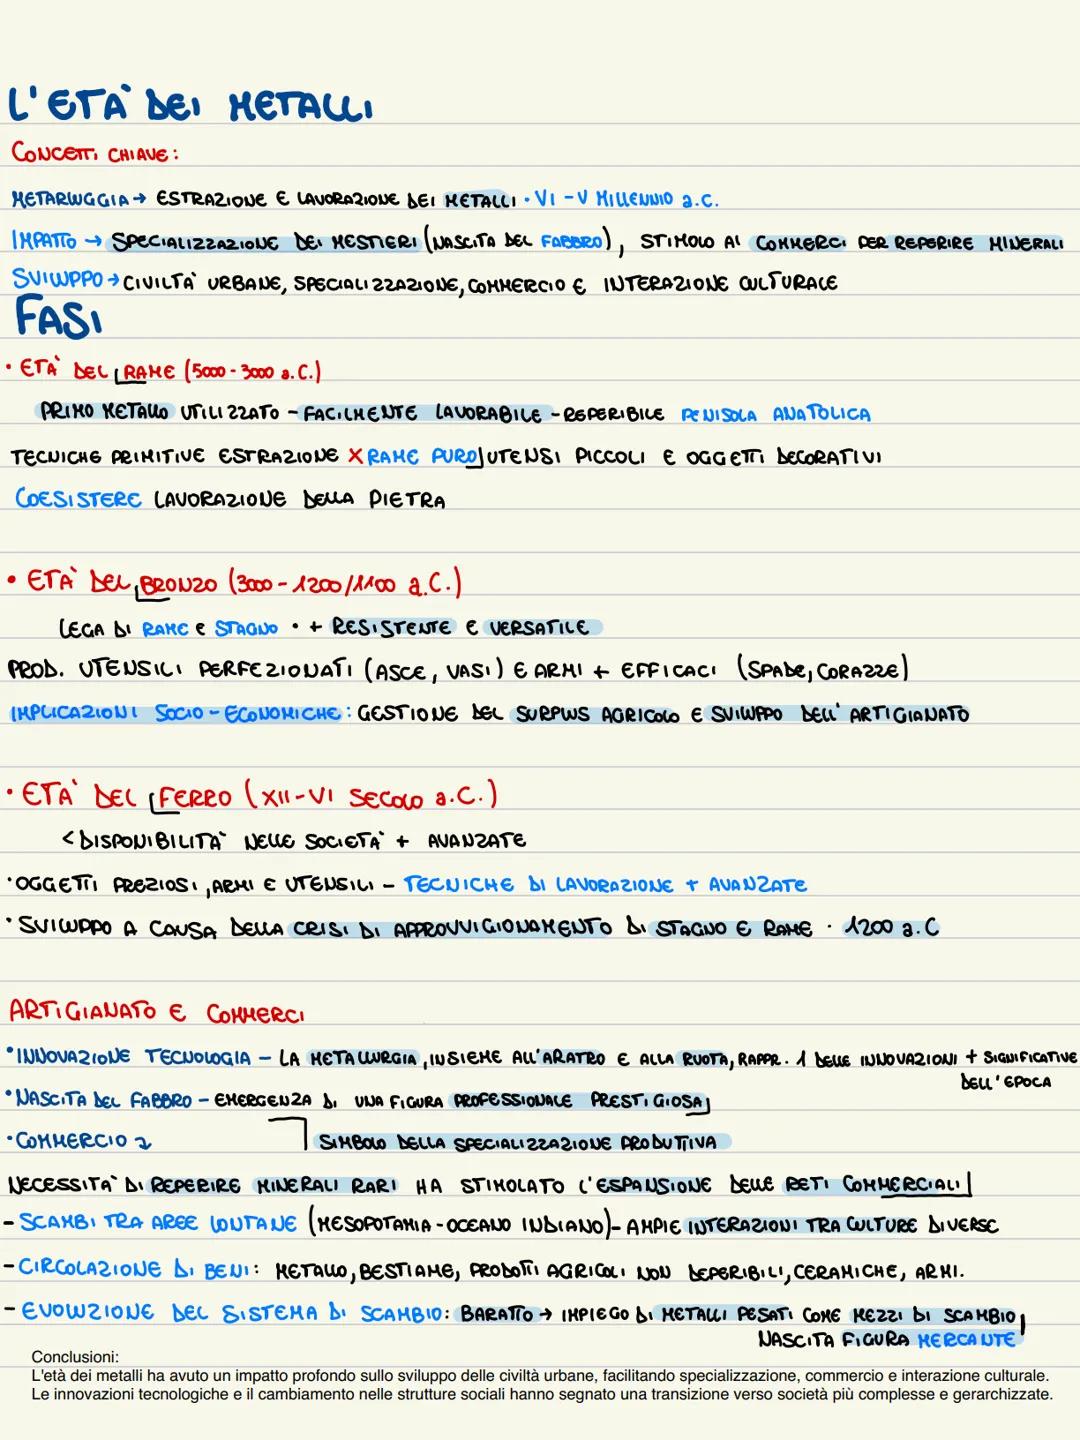 L'ETÀ DEI METALLI
CONCETTI CHIAVE:
METARLUGGIA → ESTRAZIONE E LAVORAZIONE DEI METALLI · VI - V MILLENNIO a.C.
IMPATTO → SPECIALIZZAZIONE DEI MESTIERI (NASCITA DEL FABBRO), STIMOLO AI COMMERCI PER REPERIRE MINERALI
SVILUPPO → CIVILTÀ URBANE, SPECIALIZZAZIONE, COMMERCIO E INTERAZIONE CULTURALE
FASI
· ETÀ DEL RAME (5000 - 3000 a.C.)
PRIMO METALLO UTILIZZATO - FACILMENTE LAVORABILE - REPERIBILE PENISOLA ANATOLICA
TECNICHE PRIMITIVE ESTRAZIONE X RAME PURO] UTENSI PICCOLI E OGGETTI DECORATIVI
COESISTERE LAVORAZIONE DELLA PIETRA
· ETÀ DEL BRONZO (3000 - 1200/1100 a.C.)
LEGA DI RAME e STAGNO · + RESISTENTE E VERSATILE
PROD. UTENSILI PERFEZIONATI (ASCE, VASI) E ARMI + EFFICACI (SPADE, CORAZZE)
IMPLICAZIONI SOCIO-ECONOMICHE: GESTIONE DEL SURPLUS AGRICOLO E SVILUPPO DELL'ARTIGIANATO
· ETÀ DEL FERRO (XII-VI SECOLO a.C.)
< DISPONIBILITÀ NELLE SOCIETÀ + AVANZATE
· OGGETTI PREZIOSI, ARMI E UTENSILI - TECNICHE DI LAVORAZIONE + AVANZATE
· SVILUPPO A CAUSA DELLA CRISI DI APPROVVIGIONAMENTO DI STAGNO E RAME · 1200 a.C
ARTIGIANATO E COMMERCI
· INNOVAZIONE TECNOLOGIA - LA METALLURGIA, INSIEME ALL'ARATRO E ALLA RUOTA, RAPPR. 1 DELLE INNOVAZIONI + SIGNIFICATIVE
DELL'EPOCA
· NASCITA DEL FABBRO - EMERGENZA DI UNA FIGURA PROFESSIONALE PRESTIGIOSA
· COMMERCIO
SIMBOLO DELLA SPECIALIZZAZIONE PRODUTTIVA
NECESSITÀ DI REPERIRE MINERALI RARI HA STIMOLATO L'ESPANSIONE DELLE RETI COMMERCIALI
- SCAMBI TRA AREE LONTANE (MESOPOTAMIA - OCEANO INDIANO) - AMPIE INTERAZIONI TRA CULTURE DIVERSE
- CIRCOLAZIONE DI BENI: METALLO, BESTIAME, PRODOTTI AGRICOLI NON DEPERIBILI, CERAMICHE, ARMI.
- EVOLUZIONE DEL SISTEMA DI SCAMBIO: BARATTO → IMPIEGO DI METALLI PESATI COME MEZZI DI SCAMBIO,
NASCITA FIGURA MERCANTE
Conclusioni:
L'età dei metalli ha avuto un impatto profondo sullo sviluppo delle civiltà urbane, facilitando specializzazione, commercio e interazione culturale.
Le innovazioni tecnologiche e il cambiamento nelle strutture sociali hanno segnato una transizione verso società più complesse e gerarchizzate.